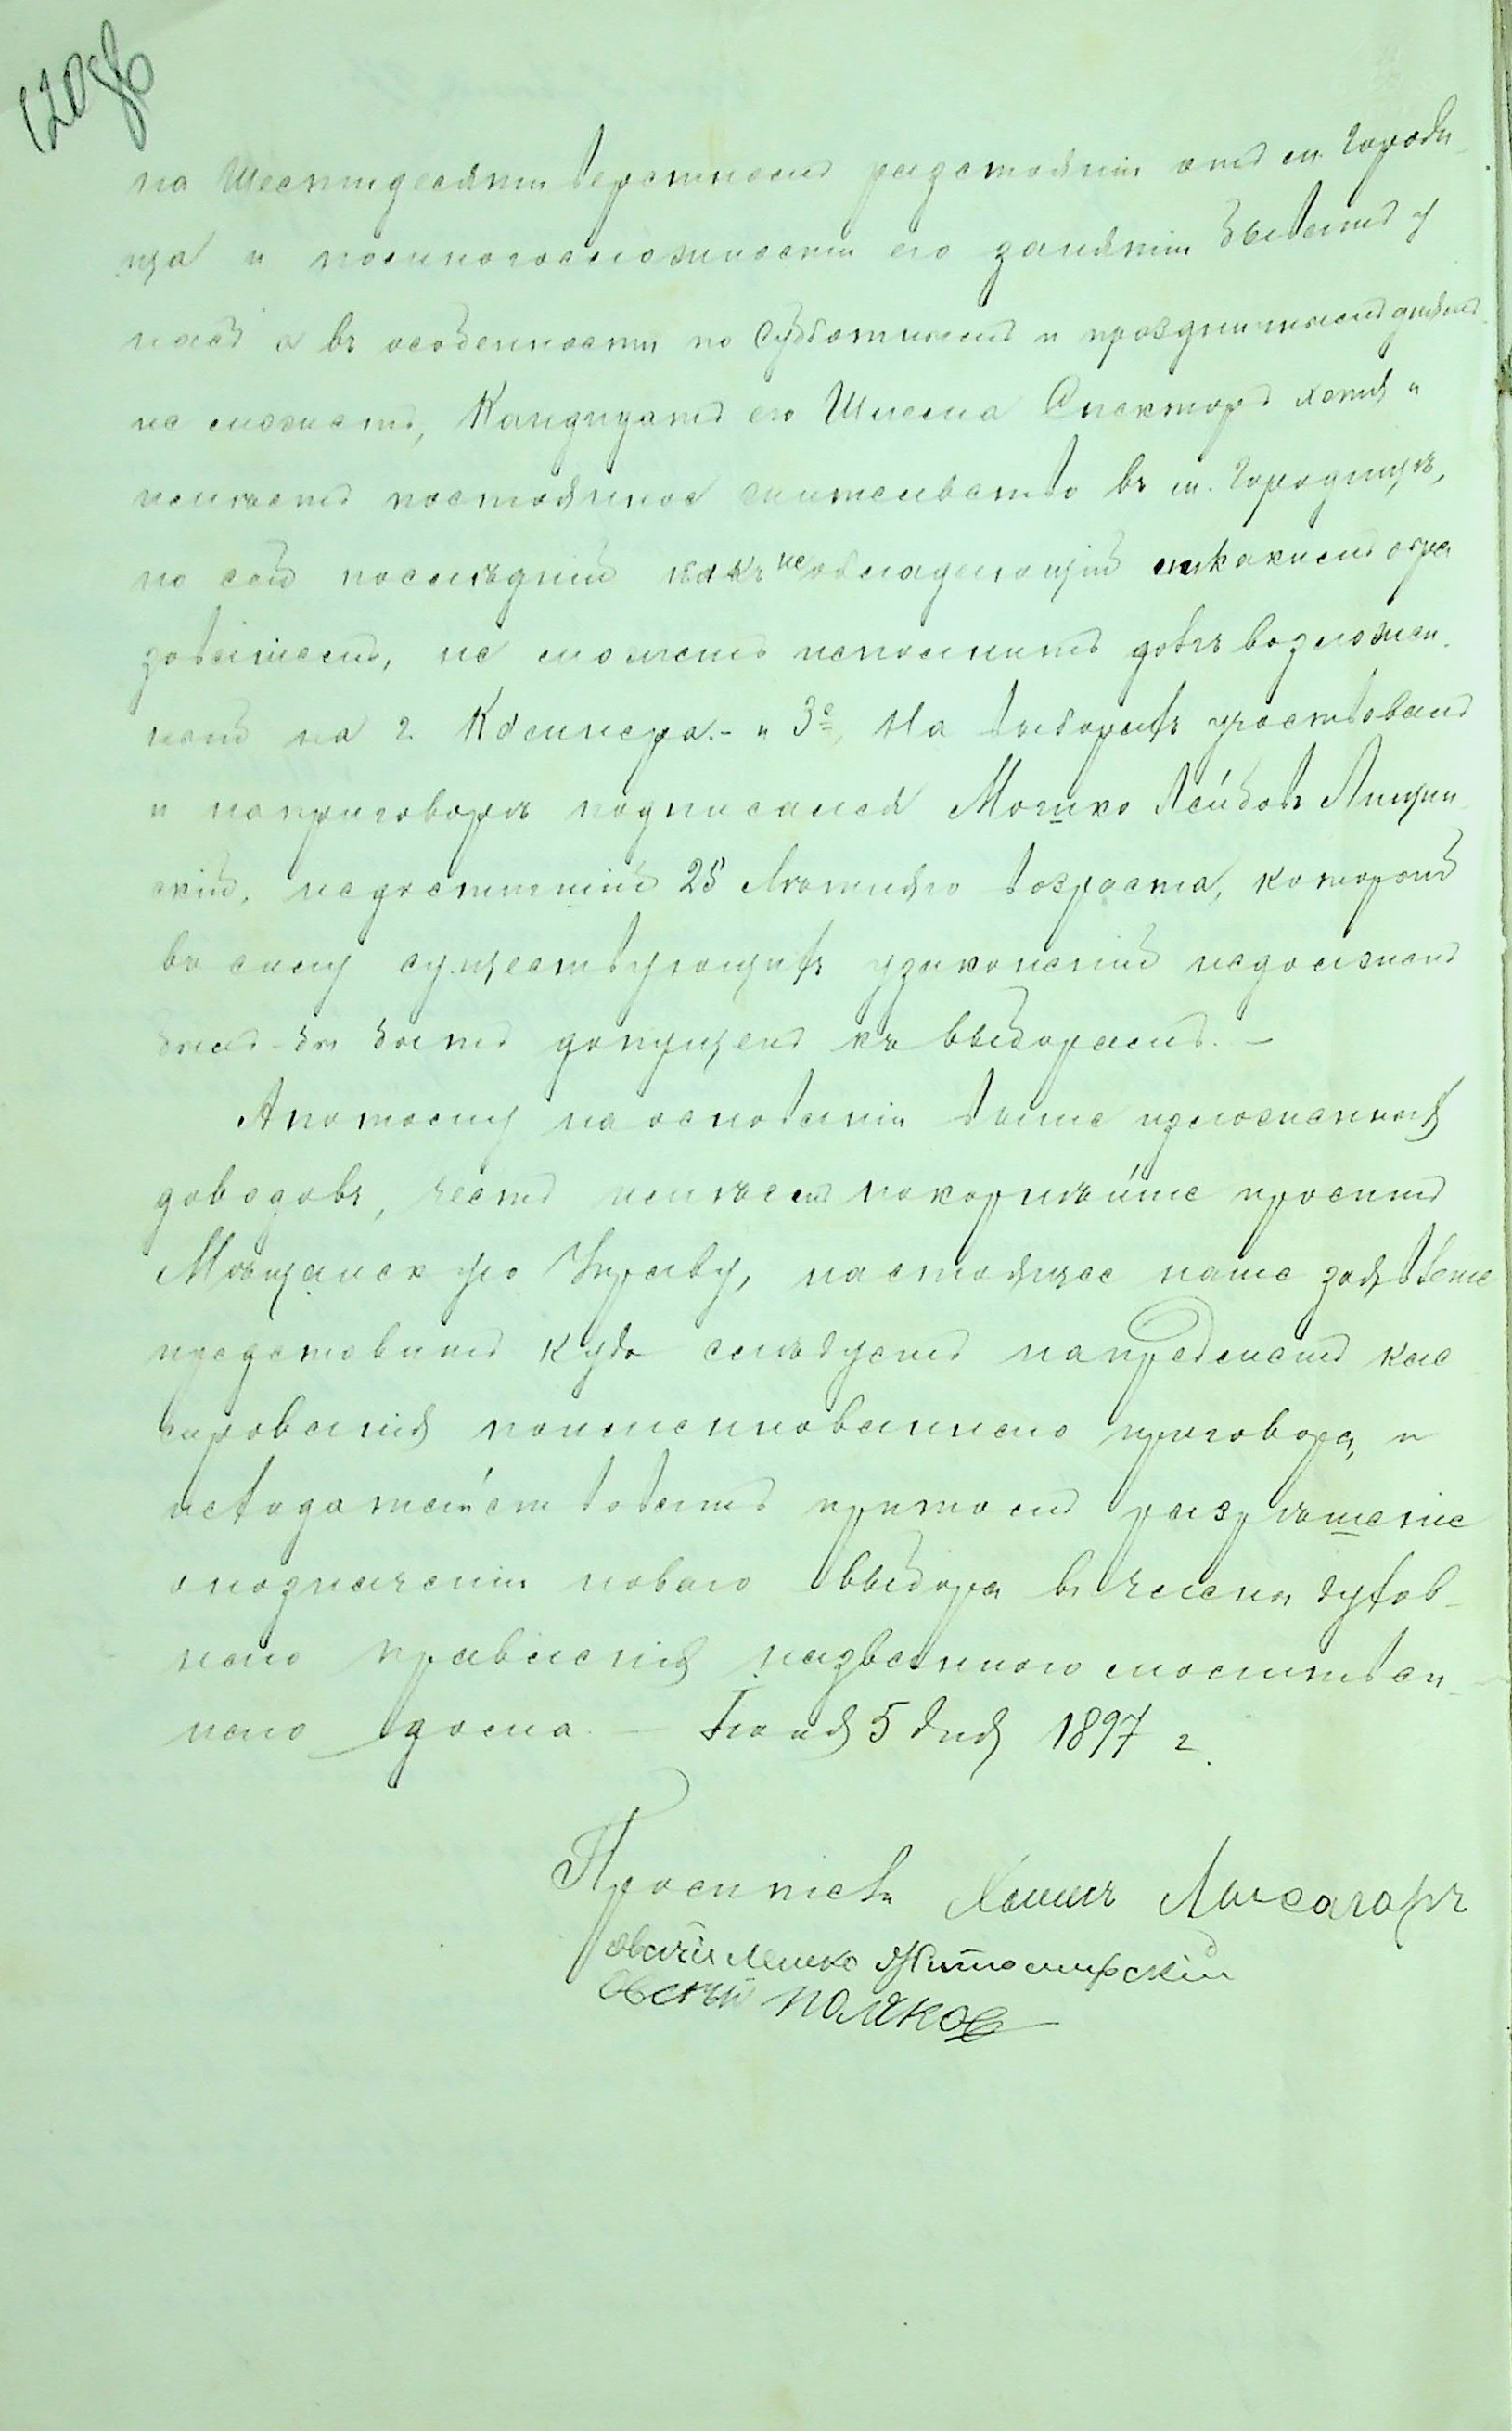 120 об
на шестидесяти верстномъ разстояніи отъ м. Городи-
ща и по многосложности его занятіи бывать у
насъ а въ особенности по субботнимъ и праздничнымъ днямъ
не можетъ, Кандидатъ его Шлема Спекторъ хотя и
имѣетъ постояное жительство въ м. Городищѣ,
но сей послѣдній какъ не обладающій никакимъ обра
зованіемъ, не можетъ исполнить долгъ возложен-
ный на г. Квашнера.- и 3е, На выборахъ участвовалъ
и на приговорѣ подписался Мошко Лейбовъ Лищин-
скій, не достигшій 25 лѣтняго возраста, который
въ силу существующихъ узаконеній не долженъ
былъ-бы быть допущенъ къ выборамъ. —
А потому на основаніи выше изложенныхъ
доводовъ, честь имѣемъ покорнѣйше просить
Мѣщанскую Управу, настоящее наше заявленіе
представить куда слѣдуетъ на предметъ кас
сированія поименнованнаго приговора, и
исходатайствовать притомъ разрѣшеніе
о назначеніи новаго выбора въ члены духов-
наго правленія названнаго молитвен-
наго дома. — Іюня 5 дня 1897 г.
Просители Хаимъ Лысагоръ
Овсій Лейко Житомирскій
Овсій Поляков